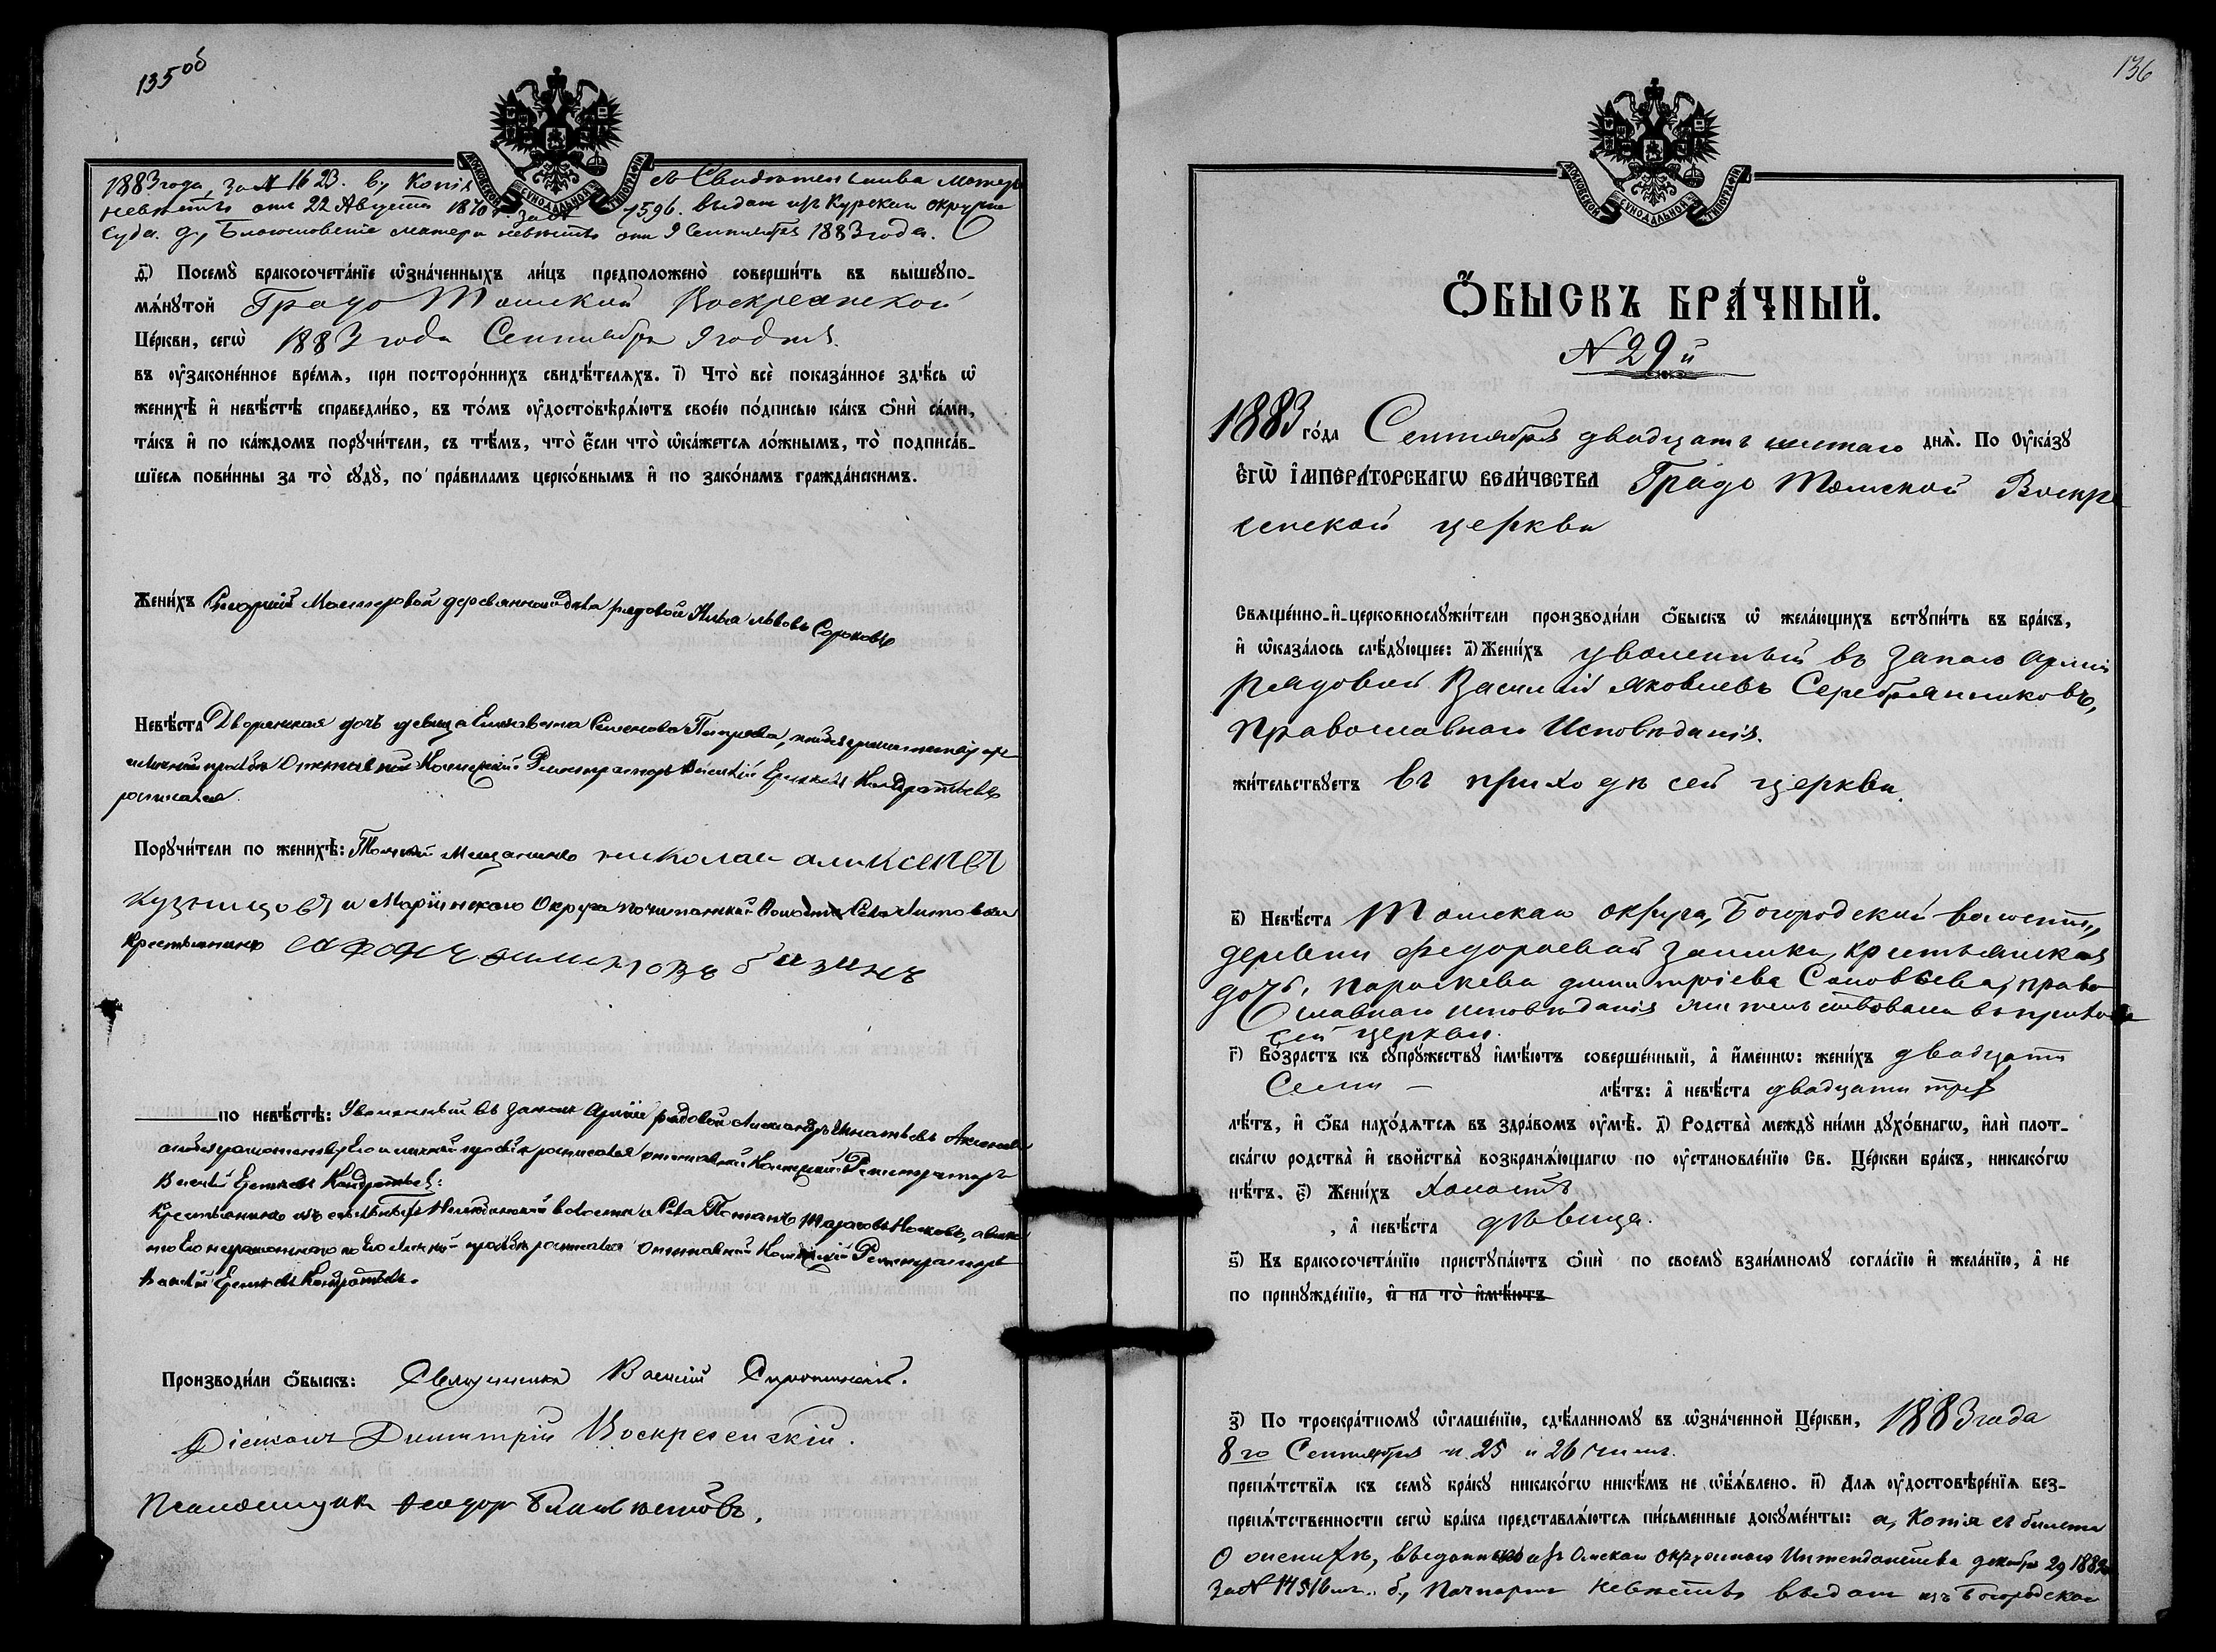 135 об
МОСКОВСКОЙ СѴНОДАЛЬНОЙ ТИПОГРАФІИ
1883 года, за № 1623. в, Копія съ Свидѣтельства матери
невѣсты отъ 22 Августа 1870 г. за № 7596. выдан изъ Курскаго окружн
суда. г, Благословеніе матери невѣсты отъ 9 Сентября 1883 года.
д҃) Посемꙋ̀ бракосочета́нїе ѡ҆зна́ченныхъ ли́цъ предположено̀ соверши́ть въ вышеꙋпо-
мѧ́нꙋтой Градо Томской Воскресенской
Це́ркви, сегѡ̀ 1883 года Сентября 9го дня.
въ ᲂу҆законе́нное вре́мѧ, при посторо́ннихъ свидѣ́телѧхъ. і҃) Что̀ всѐ показа́нное здѣ́сь ѡ҆
женихѣ̀ и҆ невѣ́стѣ справедли́во, въ то́мъ ᲂу҆достовѣрѧ́ютъ свое́ю по́дписью ка́къ ѻ҆нѝ са́ми,
та́къ и҆ по ка́ждомъ порꙋчи́тели, съ тѣ́мъ, что̀ є҆́сли что̀ ѡ҆ка́жетсѧ ло́жнымъ, то̀ подписа́в-
шїесѧ пови́нны за то̀ сꙋдꙋ̀, по пра́виламъ церко́внымъ и҆ по зако́намъ гражда́нскимъ.
Жени́хъ Старшій Мастеровой деревяннаго дѣла рядовой Илья Львовъ Сороковъ
Невѣ́ста Дворянская дочь девица Елизавета Семенова, неграмотству
личной прозбѣ Отставной Колежскій Регистраторъ Василій Кондратьевъ
росписался.
Порꙋчи́тели по женихѣ̀: Томской Мещанинъ николаи аликсеивъ
кузницовъ и Маріинскаго Округа Почитанской волости Села
Крестьянинъ
по невѣ́стѣ: Уволенный въ запасъ Арміи рядовой Александръ Игнатьевъ
а по неграмотству Его и личной прозбѣ росписался отставной Колежскій Регистраторъ
Василій Кондратьевъ:
Крестьянинъ изъ Нелюбинской волости Потапъ Тарасовъ, а вместо
то Его неграмотнаго по Его личной прозбѣ росписался отставной Колежскій Регистраторъ
Василій Кондратьевъ.
Производи́ли ѻ҆́быскъ: Священникъ Василій Сиротинскій.
Діаконъ Димитрій Воскресенскій.
Псаломщикъ Ѳеодоръ
136
МОСКОВСКОЙ СѴНОДАЛЬНОЙ ТИПОГРАФІИ
Ѻ҆́БЫСКЪ БРА́ЧНЫЙ.
№ 29й
1883 го́да Сентября двадцать шестаго днѧ̀. По Оу҆ка́зꙋ
Е҆ГѠ̀ І҆МПЕРА́ТОРСКАГѠ ВЕЛИ́ЧЕСТВА Градо Томской Воскре
сенской церкви
Свѧще́нно-и҆-церковнослꙋжи́тели производи́ли ѻ҆́быскъ ѡ҆ жела́ющихъ встꙋпи́ть въ бра́къ,
и҆ ѡ҆каза́лось слѣ́дꙋющее: а҃) Жени́хъ уволенный въ запасъ Арміи
Рядовой Василій Яковлевъ Серебрянниковъ,
Православнаго Исповѣданія.
жи́тельствꙋетъ въ приходѣ сей церкви.
в҃) Невѣ́ста Томскаго округа, Богородской волости,
деревни Федораевой заимки, крестьянская
дочь, Параскева Димитріева Соловьева, право
славнаго исповѣданія жительствовала въ приходѣ
сей церкви.
г҃) Во́зрастъ къ сꙋпрꙋ́жествꙋ и҆мѣ́ютъ соверше́нный, а҆ и҆́меннѡ: жени́хъ двадцати
Семи — лѣ́тъ: а҆ невѣ́ста двадцати трех
лѣ́тъ, и҆ ѻ҆́ба нахо́дѧтсѧ въ здра́вомъ ᲂу҆мѣ̀. д҃) Родства̀ междꙋ̀ ни́ми дꙋхо́внагѡ, и҆лѝ плот-
ска́гѡ родства̀ и҆ свойства̀ возбранѧ́ющагѡ по ᲂу҆становле́нїю Св. Це́ркви бра́къ, никако́гѡ
нѣ́тъ. є҃) Жени́хъ холостъ
, а҆ невѣ́ста дѣвица.
ѕ҃) Къ бракосочета́нїю пристꙋпа́ютъ ѻ҆нѝ по своемꙋ̀ взаи́мномꙋ согла́сїю и҆ жела́нїю, а҆ не
по принꙋжде́нїю, и҆ на то̀ и҆мѣ́ютъ
з҃) По троекра́тномꙋ ѡ҆глаше́нїю, сдѣ́ланномꙋ въ ѡ҆зна́ченной Це́ркви, 1883 года
8го Сентября и 25 и 26 чисел.
препѧ́тствїѧ къ семꙋ̀ бра́кꙋ никако́гѡ никѣ́мъ не ѡ҆бъѧ́влено. и҃) Длѧ ᲂу҆достовѣре́нїѧ без-
препѧ́тственности сегѡ̀ бра́ка представлѧ́ютсѧ пи́сьменные докꙋме́нты: а, Копія съ билета
О женихѣ, выданнаго изъ Омскаго окружнаго Интендантства декабря 29 188
За № 14516м. б, Паспортъ невѣсты выдан изъ Богородскаго